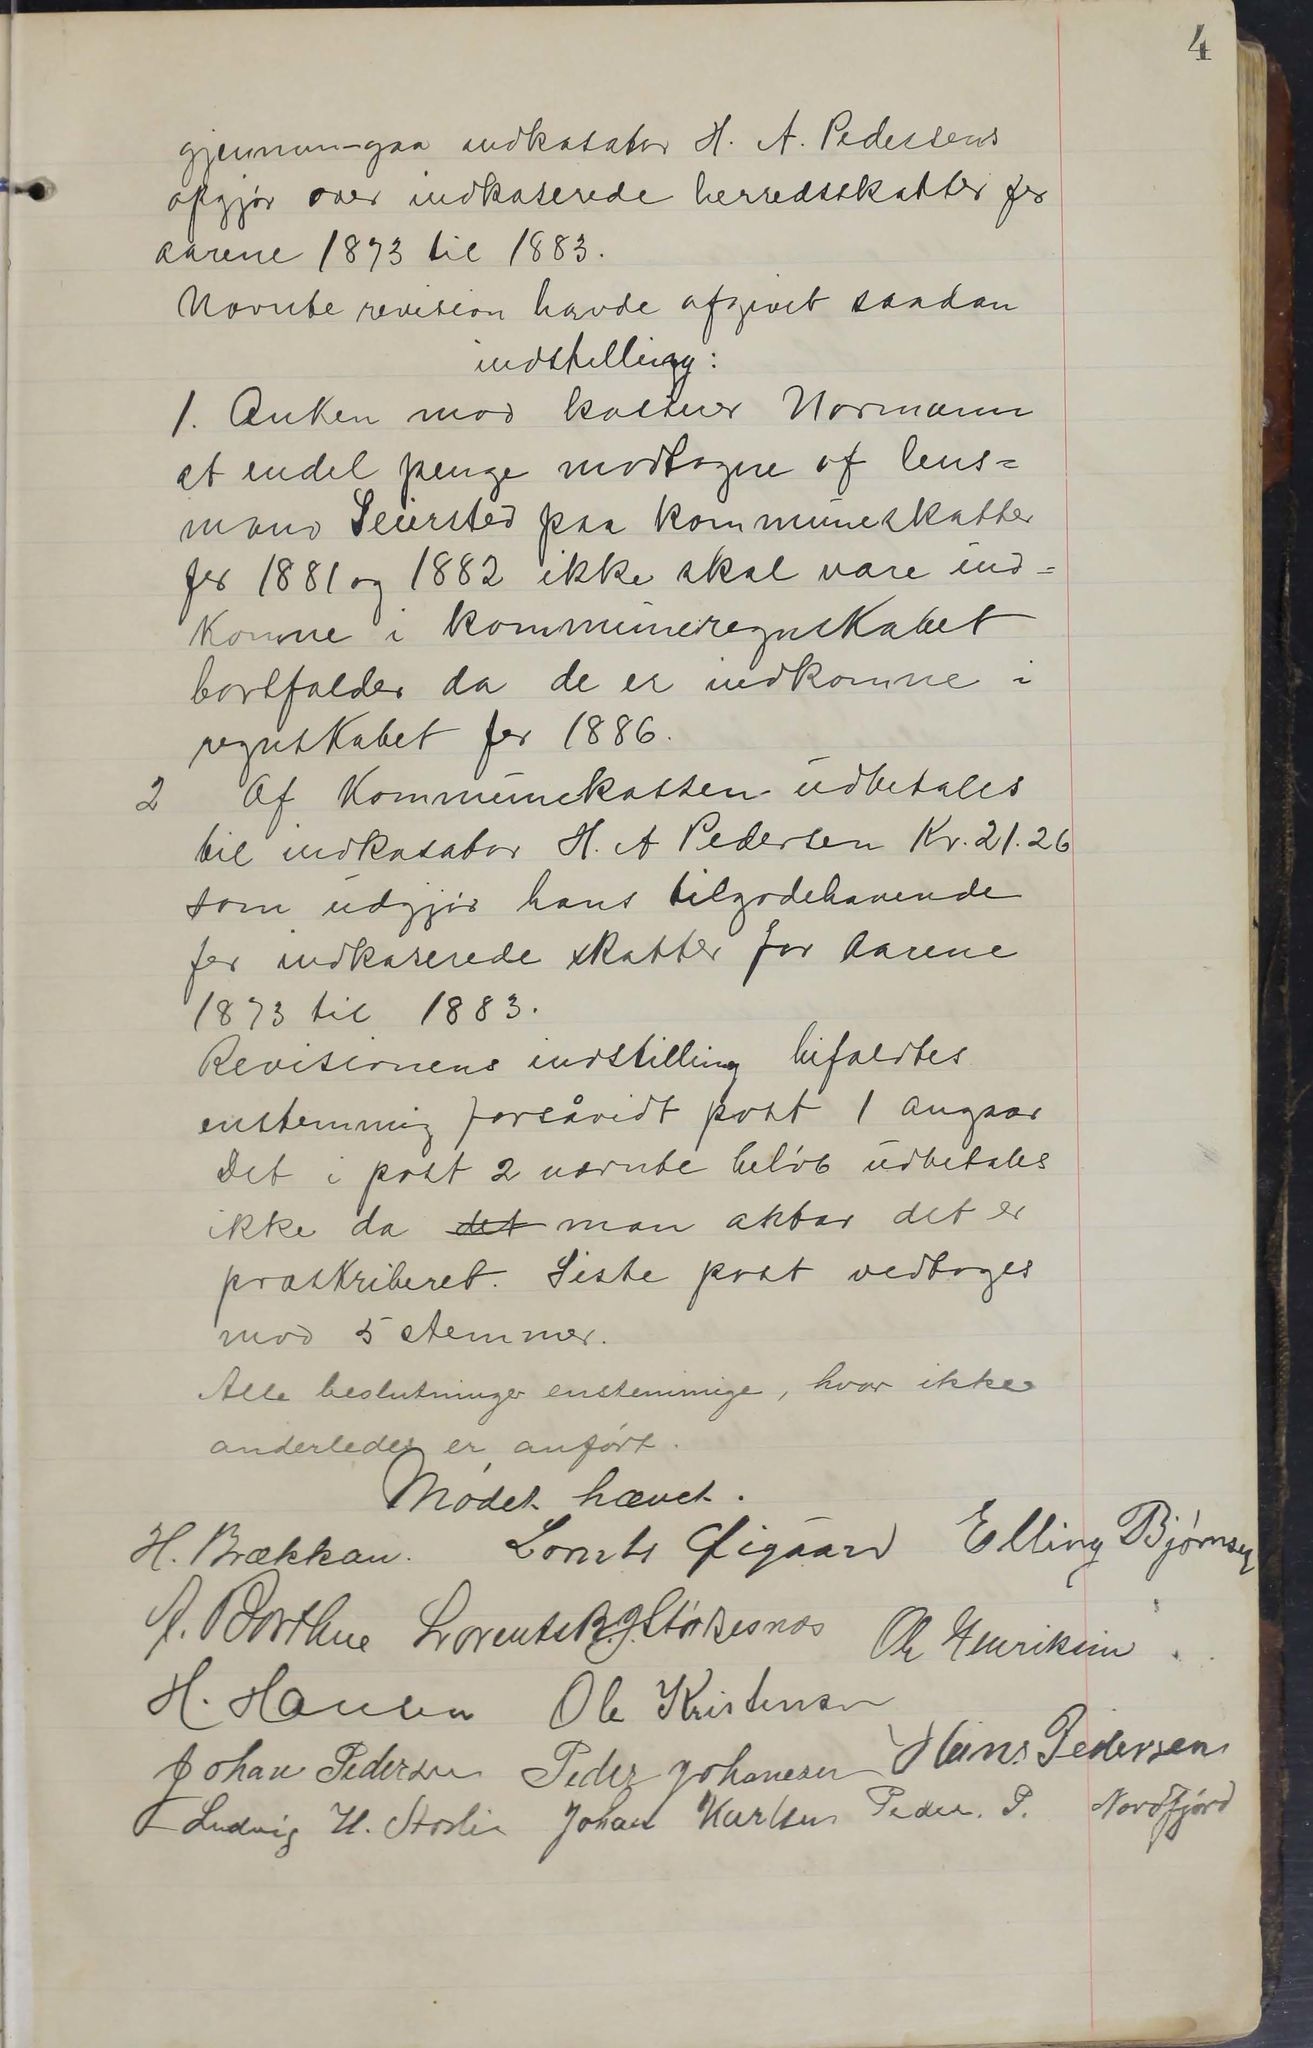 4
gjennem-gaa indkasator H. A. Pedersens
opgjør over indkaserede herredsskatter for
aarene 1873 til 1883.
Nævnte revision havde afgivet saadan
indstilling:
1. Anken mod kasserer Normann
at endel penge modtagne af lens=
mand Seiersted paa kommuneskatter
for 1881 og 1882 ikke skal være ind=
komne i kommuneregnskabet
bortfalder da de er indkomne i
regnskabet for 1886.
2 Af Kommunekassen udbetales
til indkasator H. A Pedersen Kr. 21.26
som udgjør hans tilgodehavende
for indkaserede skatter for Aarene
1873 til 1883.
Revisionens indstilling bifaldtes
enstemmig forsåvidt post 1 angaar
Det i post 2 nævnte beløb udbetales
ikke da det man aktar det er
præskriberet. Siste post vedtoges
mod 5 stemmer.
Alle beslutninger enstemmige, hvor ikke
anderledes er anført.
Mødet hævet.
H. Brækkan. Lornts Øigaard Elling Bjørnsen
A. Borthne Lorents R. J. Størkesnæs Ole Henriksen
H. Hansen Ole Kristensen
Johan Pedersen Peder Johanesen Hans Pedersen
Ludvig H. Storli Johan Karlsen Peder. P. Nordfjord